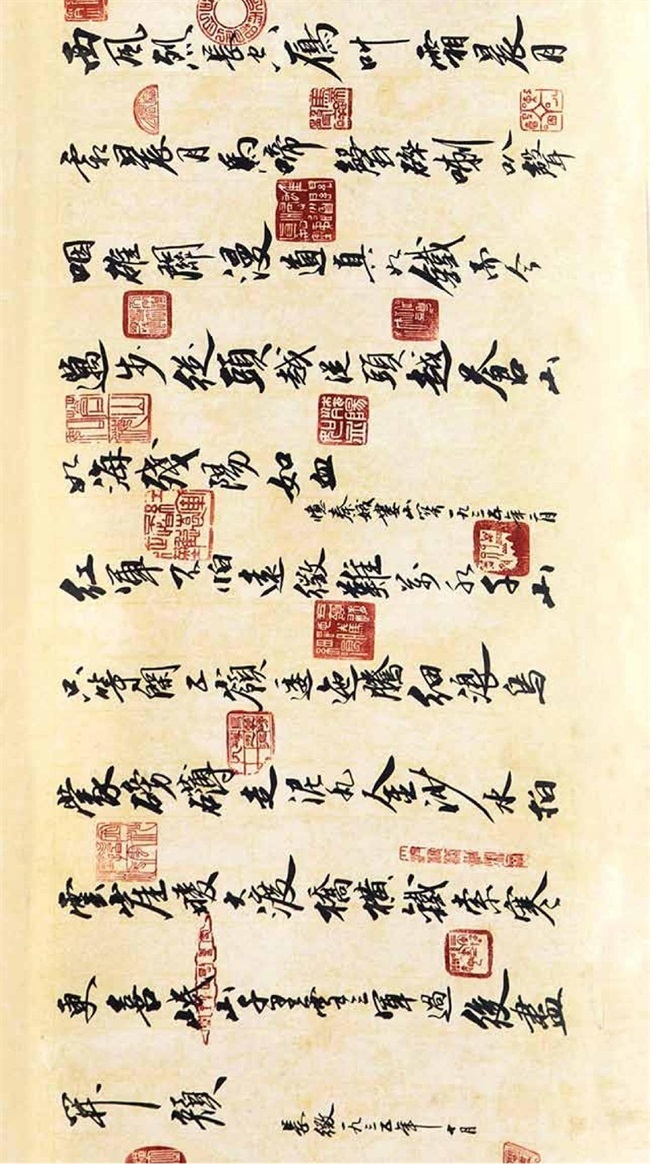 西風烈長空雁叫霜晨月
霜晨月馬蹄聲碎喇叭聲
咽雄關漫道真如鐵而今
邁步從頭越從頭越蒼山
如海殘陽如血
憶秦娥婁山關一九三五年二月
紅軍不怕遠徵難萬水千山
只等閑五嶺逶迤騰細浪烏
蒙磅礴走泥丸金沙水拍
雲崖暖大渡橋橫鐵索寒
更喜岷山千里雪三軍過後盡
開顏
長徵一九三五年十月